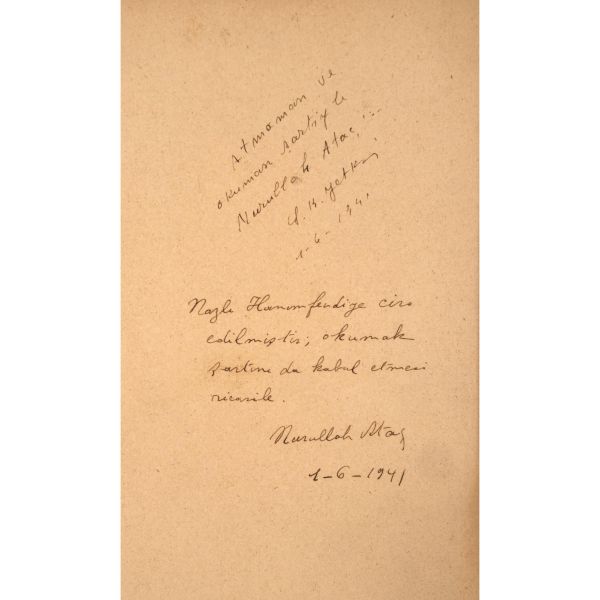 Atmaman ve
okuman şartiyle
Nurullah Ataç'a...
S. K. Yetkin
1-6-1941
Nazlı Hanımfendiye ciro
edilmiştir; okumak
şartını da kabul etmesi
ricasile.
Nurullah Ataç
1-6-1941